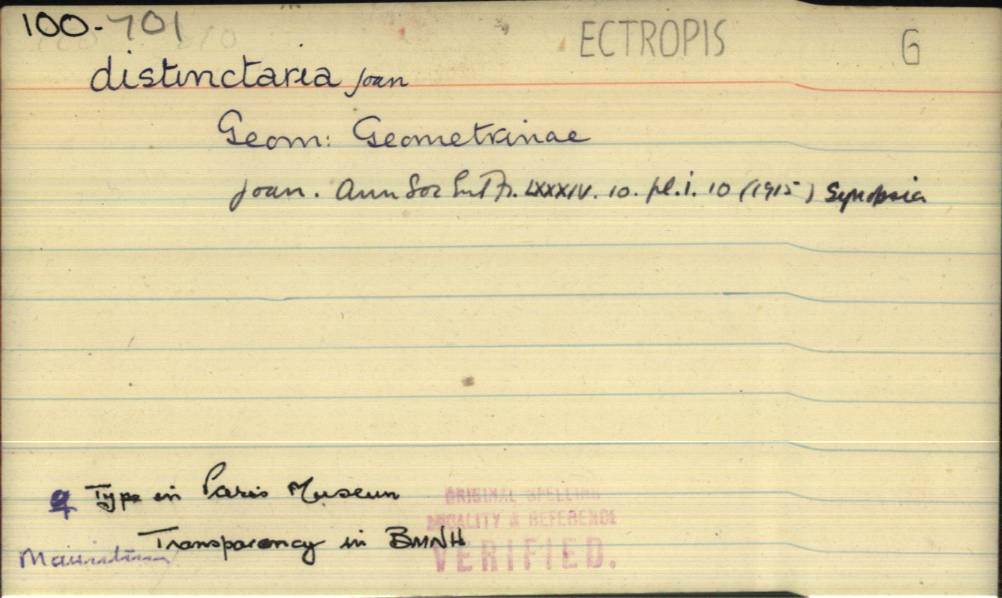 100-701
ECTROPIS
G
distinctaria Joan
Geom: Geometrinae
Joan. Ann Soc Ent Fr. LXXXIV. 10. pl. i. 10 (1915) Synopsia
♀ Type in Paris Museum
Transparency in BMNH
ORIGINAL SPELLING
LOCALITY & REFERENCE
VERIFIED.